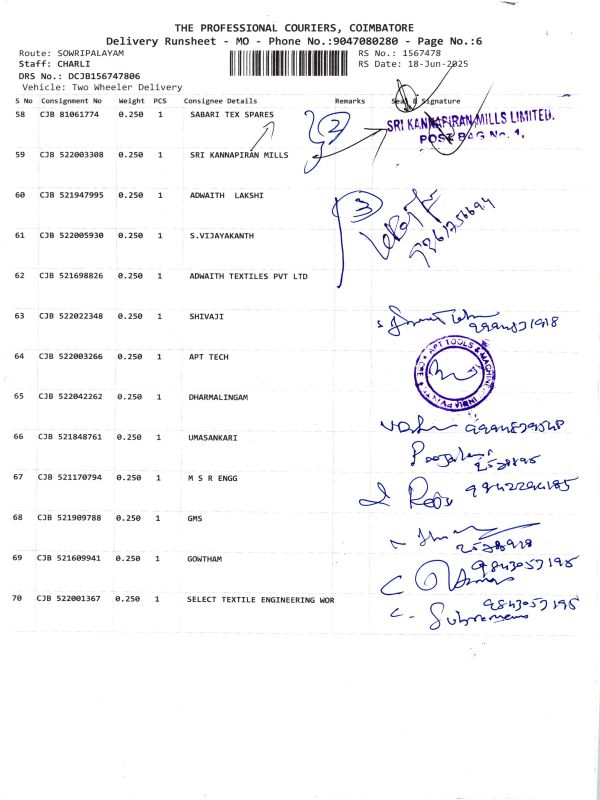 THE PROFESSIONAL COURIERS, COIMBATORE
Delivery Runsheet - MO - Phone No.:9047080280 - Page No.:6
Route: SOWRIPALAYAM RS No.: 1567478
Staff: CHARLI RS Date: 18-Jun-2025
DRS No.: DCJB156747806
Vehicle: Two Wheeler Delivery
S No Consignment No Weight PCS Consignee Details Remarks Seal & Signature
58 CJB 81061774 0.250 1 SABARI TEX SPARES 2 SRI KANNAPIRAN MILLS LIMITED.
POST BAG No. 1,
59 CJB 522003308 0.250 1 SRI KANNAPIRAN MILLS
60 CJB 521947995 0.250 1 ADWAITH LAKSHI 3
61 CJB 522005930 0.250 1 S.VIJAYAKANTH
62 CJB 521698826 0.250 1 ADWAITH TEXTILES PVT LTD
63 CJB 522022348 0.250 1 SHIVAJI
64 CJB 522003266 0.250 1 APT TECH APT TOOLS & MACHINERY INDIA PVT
65 CJB 522042262 0.250 1 DHARMALINGAM
66 CJB 521848761 0.250 1 UMASANKARI
67 CJB 521170794 0.250 1 M S R ENGG
68 CJB 521909788 0.250 1 GMS
69 CJB 521609941 0.250 1 GOWTHAM 9843057195
70 CJB 522001367 0.250 1 SELECT TEXTILE ENGINEERING WOR 9843057195